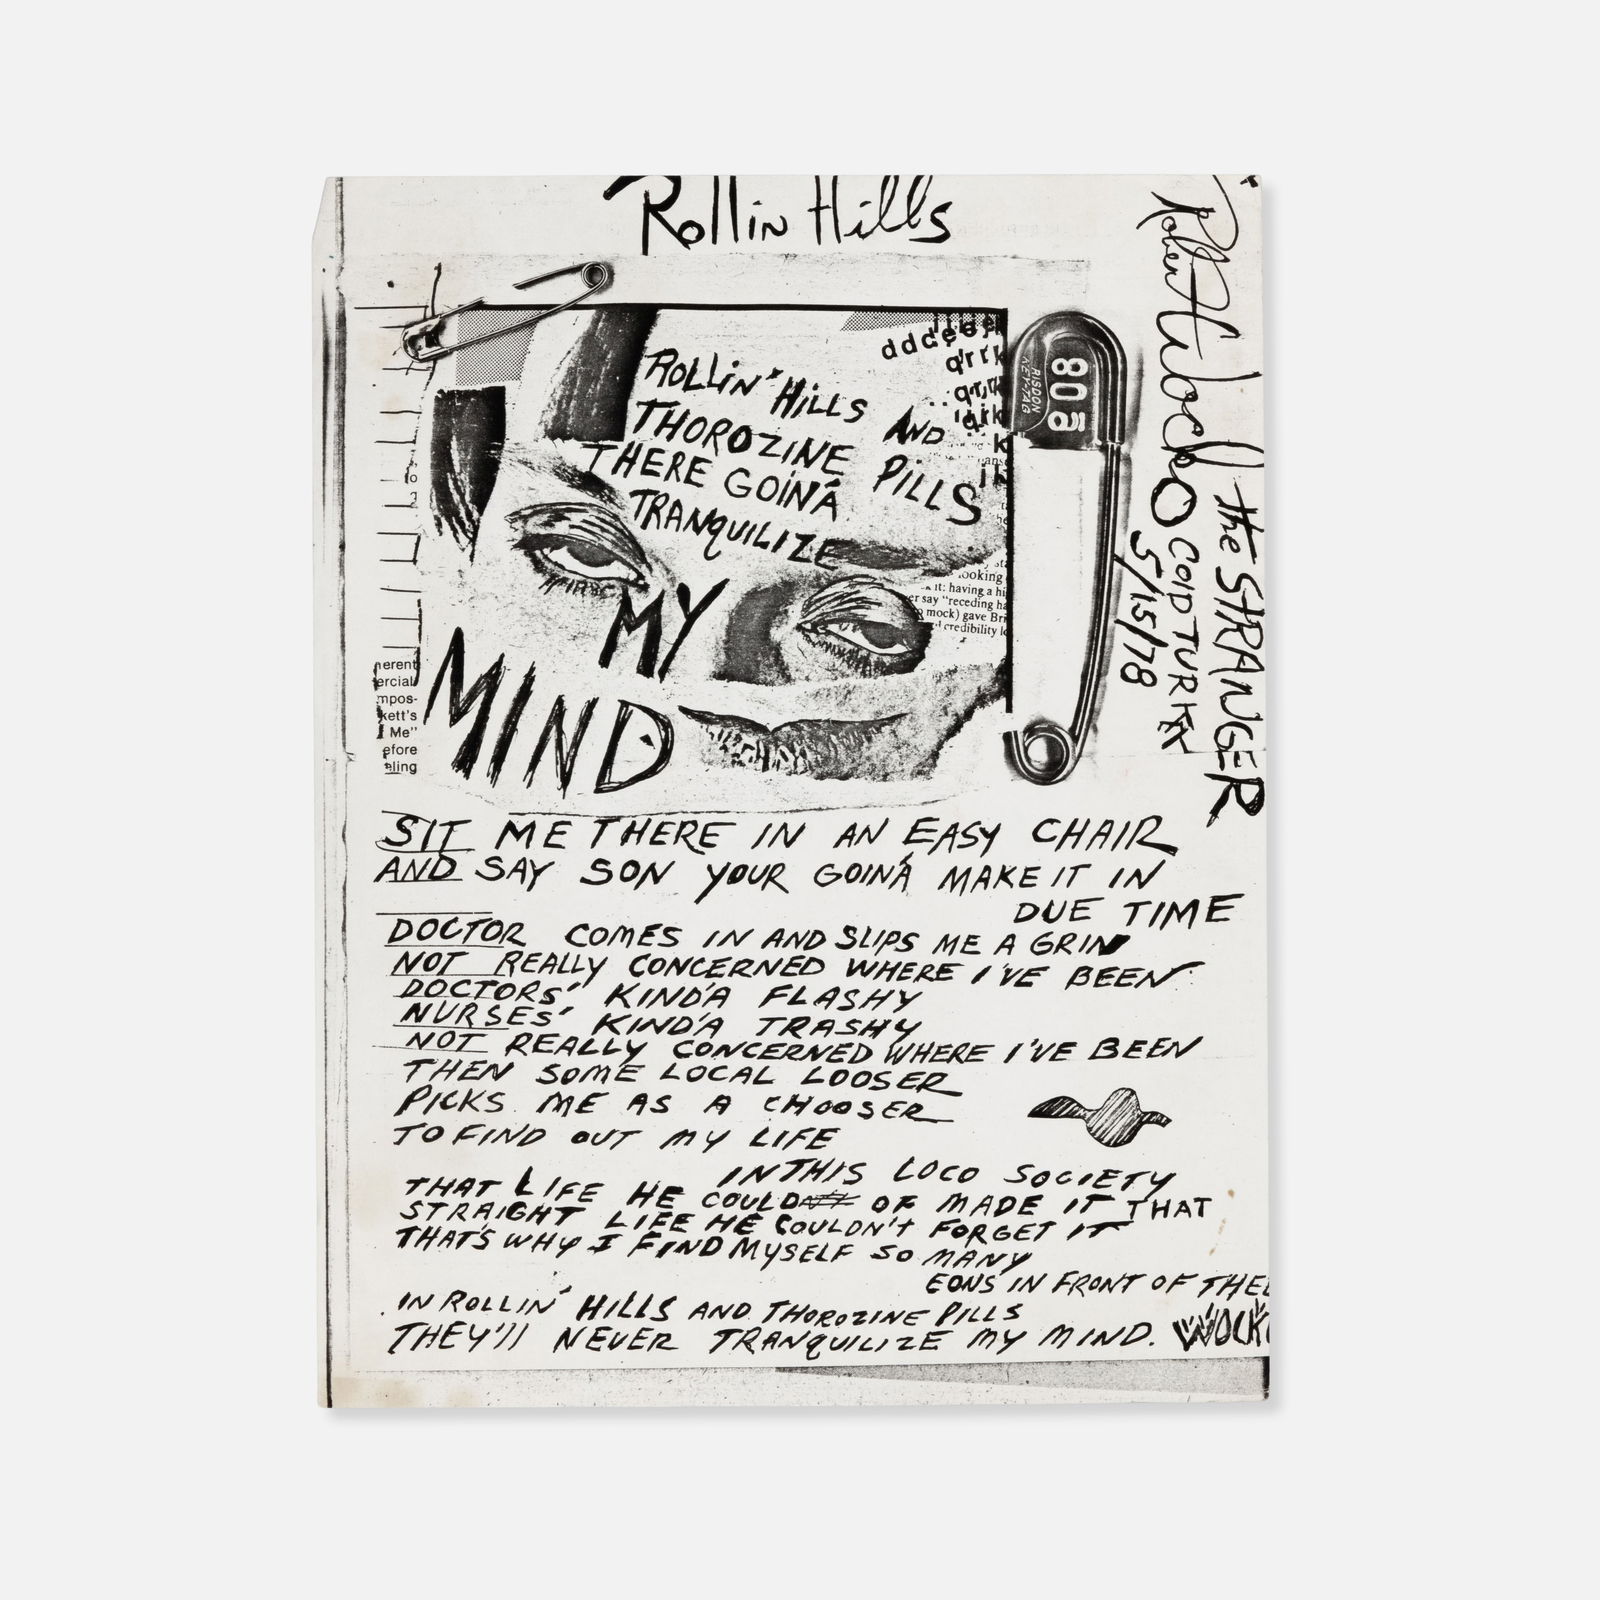 Rollin Hills
ROLLIN' HILLS AND
THOROZINE PILLS
THERE GOIN'A
TRANQUILIZE
MY
MIND
ddcee
qrrk
808
RISDON
KEY-TAG
looking
it: having a
er say "receding
mock) gave Bri
credibility
erent
ercial
mpos-
kett's
Me"
efore
eling
the STRANGER
COLD TURKEY
5/15/78
SIT ME THERE IN AN EASY CHAIR
AND SAY SON YOUR GOIN'A MAKE IT IN
DUE TIME
DOCTOR COMES IN AND SLIPS ME A GRIN
NOT REALLY CONCERNED WHERE I'VE BEEN
DOCTORS' KIND'A FLASHY
NURSES' KIND'A TRASHY
NOT REALLY CONCERNED WHERE I'VE BEEN
THEN SOME LOCAL LOOSER
PICKS ME AS A CHOOSER
TO FIND OUT MY LIFE
IN THIS LOCO SOCIETY
THAT LIFE HE COULD OF MADE IT THAT
STRAIGHT LIFE HE COULDN'T FORGET IT
THAT'S WHY I FIND MYSELF SO MANY
EONS IN FRONT OF THE
IN ROLLIN' HILLS AND THOROZINE PILLS
THEY'll NEVER TRANQUILIZE MY MIND. WOCK